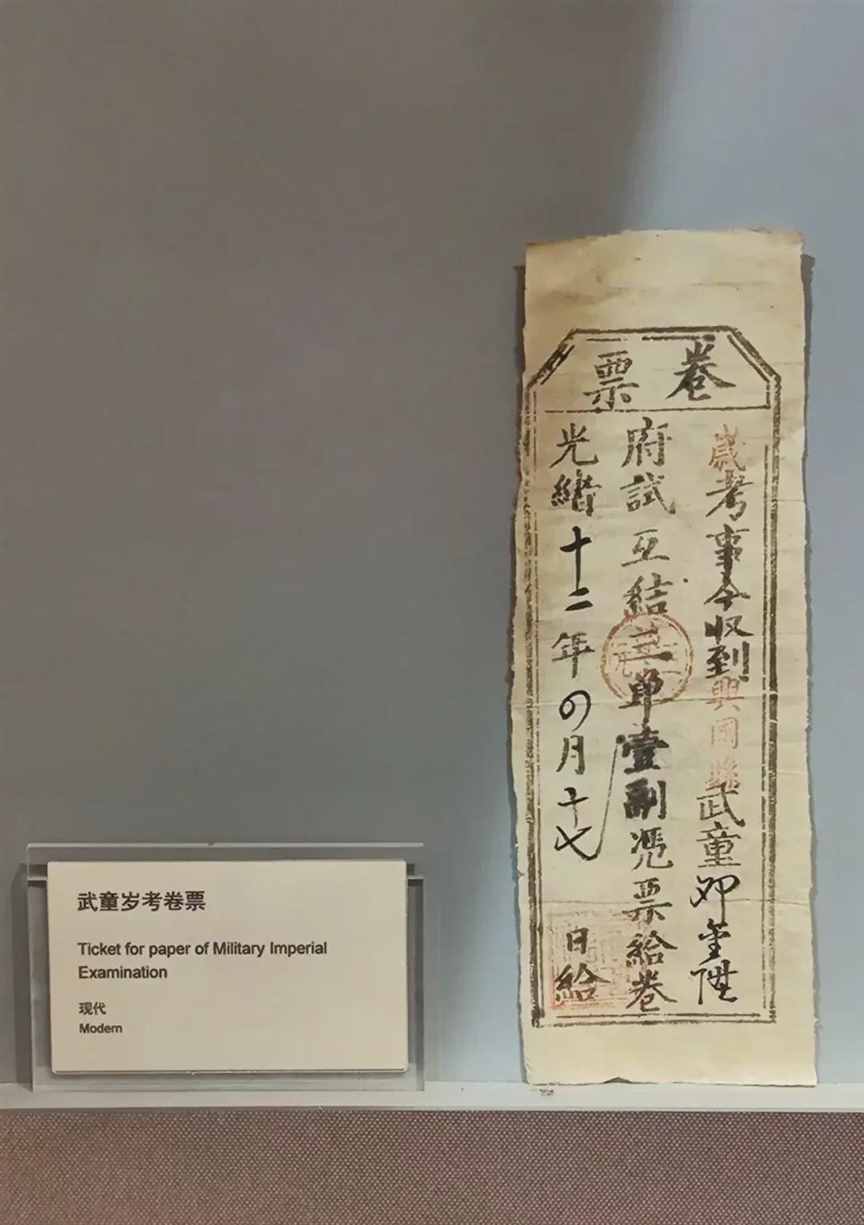 卷票
歲考事今収到興國縣武童邓金陞
府試互結單壹副憑票給卷
光緒十二年四月十七日給
武童岁考卷票
Ticket for paper of Military Imperial
Examination
现代
Modern